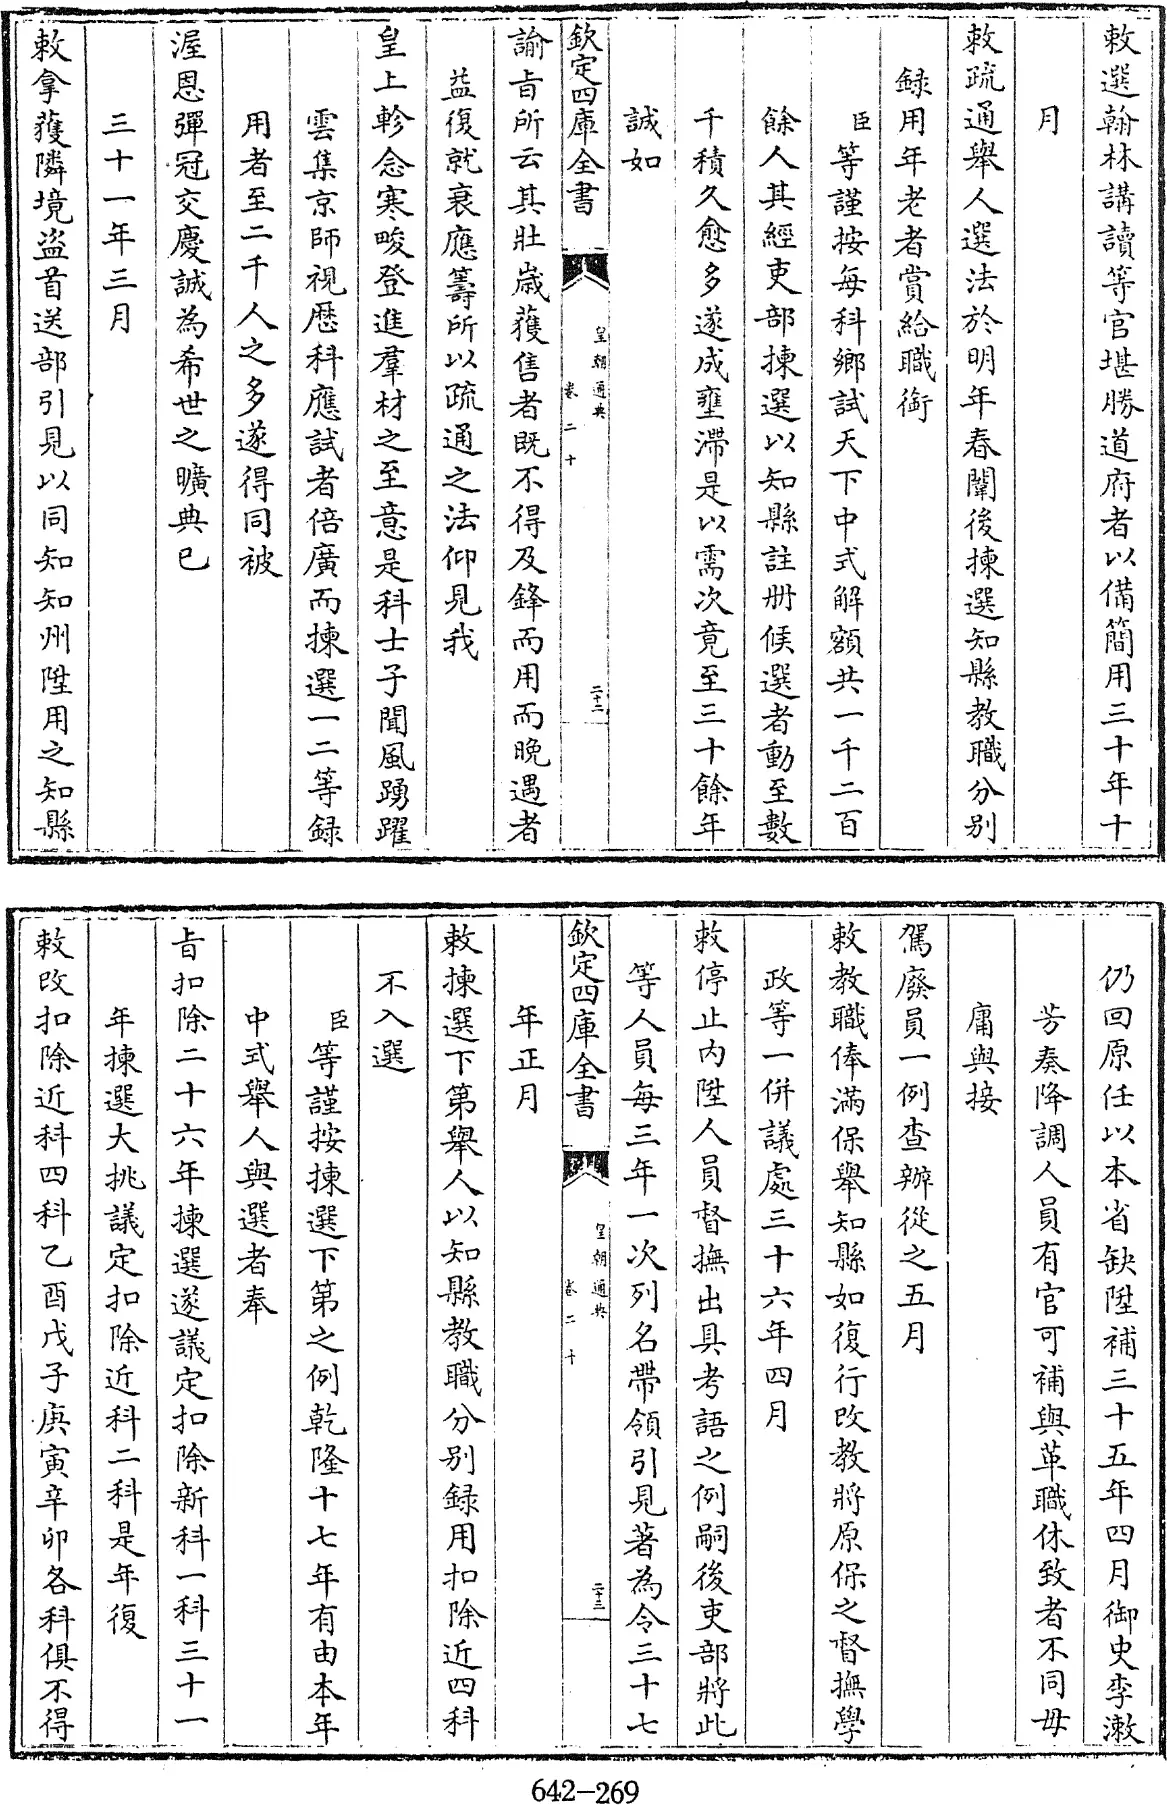 敕選翰林講讀等官堪勝道府者以備簡用三十年十
月
敕疏通舉人選法於明年春闈後揀選知縣教職分别
録用年老者賞給職銜
臣等謹按每科鄉試天下中式解額共一千二百
餘人其經吏部揀選以知縣註冊候選者動至數
千積久愈多遂成壅滯是以需次竟至三十餘年
誠如
欽定四庫全書
皇朝通典
卷二十
二十二
諭旨所云其壯歲獲售者既不得及鋒而用而晩遇者
益復就衰應籌所以疏通之法仰見我
皇上軫念寒畯登進羣材之至意是科士子聞風踴躍
雲集京師視歷科應試者倍廣而揀選一二等録
用者至二千人之多遂得同被
渥恩彈冠交慶誠為希世之曠典已
三十一年三月
敕拿獲隣境盜首送部引見以同知知州陞用之知縣
仍回原任以本省缺陞補三十五年四月御史李漱
芳奏降調人員有官可補與革職休致者不同毋
庸與接
駕廢員一例查辦從之五月
敕教職俸滿保舉知縣如復行改教將原保之督撫學
政等一併議處三十六年四月
敕停止内陞人員督撫出具考語之例嗣後吏部將此
等人員每三年一次列名帶領引見著為令三十七
欽定四庫全書
皇朝通典
卷二十
二十三
年正月
敕揀選下第舉人以知縣教職分别録用扣除近四科
不入選
臣等謹按揀選下第之例乾隆十七年有由本年
中式舉人與選者奉
旨扣除二十六年揀選遂議定扣除新科一科三十一
年揀選大挑議定扣除近科二科是年復
敕改扣除近科四科乙酉戊子庚寅辛卯各科俱不得
642-269